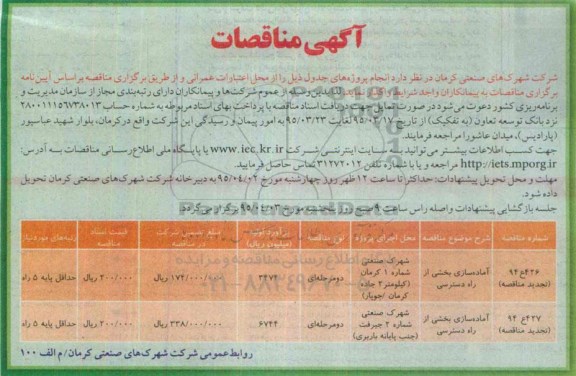 آگهی مناقصات
شرکت شهرک‌های صنعتی کرمان در نظر دارد انجام پروژه‌های جدول ذیل را از محل اعتبارات عمرانی و از طریق برگزاری مناقصه براساس آیین‌نامه
برگزاری مناقصات به پیمانکاران واجد شرایط واگذار نماید. لذا بدین وسیله از عموم شرکت‌ها و پیمانکاران دارای رتبه‌بندی مجاز از سازمان مدیریت و
برنامه‌ریزی کشور دعوت می‌شود در صورت تمایل جهت دریافت اسناد مناقصه با پرداخت بهای اسناد مربوطه به شماره حساب ۲۸۰۰۱۱۱۵۶۷۳۸۰۱۳
نزد بانک توسعه تعاون (به تفکیک) از تاریخ ۹۵/۰۳/۱۷ لغایت ۹۵/۰۳/۲۳ به امور پیمان و رسیدگی این شرکت واقع در کرمان، بلوار شهید عباسپور
(پارادیس)، میدان عاشورا مراجعه فرمایند.
جهت کسب اطلاعات بیشتر می‌توانید به وب سایت اینترنتی شرکت www.iec_kr.ct.ir یا پایگاه ملی اطلاع‌رسانی مناقصات به آدرس:
http://iets.mporg.ir مراجعه و یا با شماره تلفن ۳۱۲۷۲۰۱۲ تماس حاصل فرمایید.
مهلت و محل تحویل پیشنهادات: حداکثر تا ساعت ۱۲ ظهر روز چهارشنبه مورخ ۹۵/۰۴/۰۲ به دبیرخانه شرکت شهرک‌های صنعتی کرمان تحویل
داده شود.
جلسه بازگشایی پیشنهادات واصله راس ساعت ۹ صبح روز پنجشنبه مورخ ۹۵/۰۴/۰۳ برگزار می‌گردد.
شماره مناقصه شرح موضوع مناقصه محل اجرای پروژه نوع مناقصه برآورد اولیه (میلیون ریال) مبلغ تضمین شرکت در مناقصه قیمت اسناد مناقصه رتبه‌های موردنیاز
۴۲۶ع۹۴ (تجدید مناقصه) آماده‌سازی بخشی از راه دسترسی شهرک صنعتی شماره ۱ کرمان (کیلومتر ۲ جاده کرمان /جوپار) دومرحله‌ای ۳۴۷۴ ۱۷۴/۰۰۰/۰۰۰ ریال ۲۰۰/۰۰۰ ریال حداقل پایه ۵ راه
۴۲۷ع ۹۴ (تجدید مناقصه) آماده‌سازی بخشی از راه دسترسی شهرک صنعتی شماره ۲ جیرفت (جنب پایانه باربری) دومرحله‌ای ۶۷۴۴ ۳۳۸/۰۰۰/۰۰۰ ریال ۲۰۰/۰۰۰ ریال حداقل پایه ۵ راه
روابط عمومی شرکت شهرک‌های صنعتی کرمان/م الف ۱۰۰